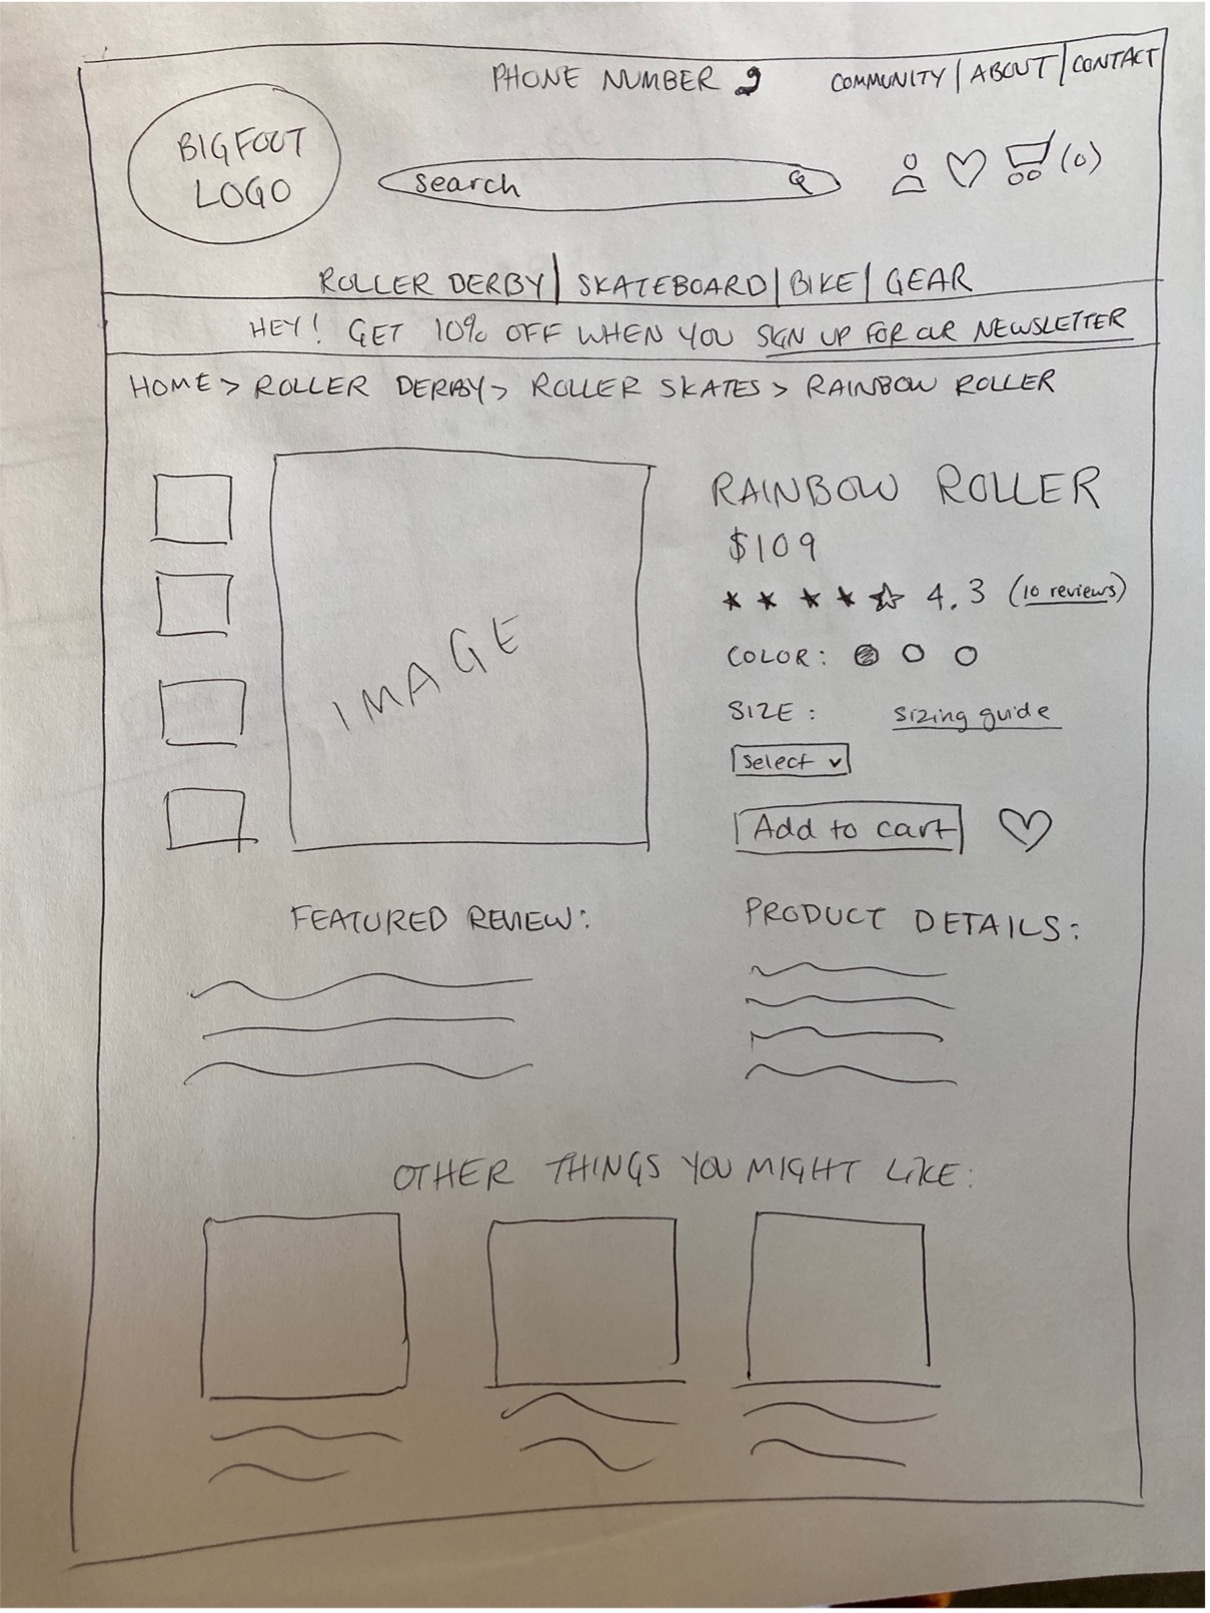 PHONE NUMBER
COMMUNITY | ABOUT | CONTACT
BIGFOOT
LOGO
search
(0)
ROLLER DERBY | SKATEBOARD | BIKE | GEAR
HEY! GET 10% OFF WHEN YOU SIGN UP FOR OUR NEWSLETTER
HOME > ROLLER DERBY > ROLLER SKATES > RAINBOW ROLLER
IMAGE
RAINBOW ROLLER
$109
4.3 (10 reviews)
COLOR:
SIZE: sizing guide
Select
Add to cart
FEATURED REVIEW:
PRODUCT DETAILS:
OTHER THINGS YOU MIGHT LIKE: